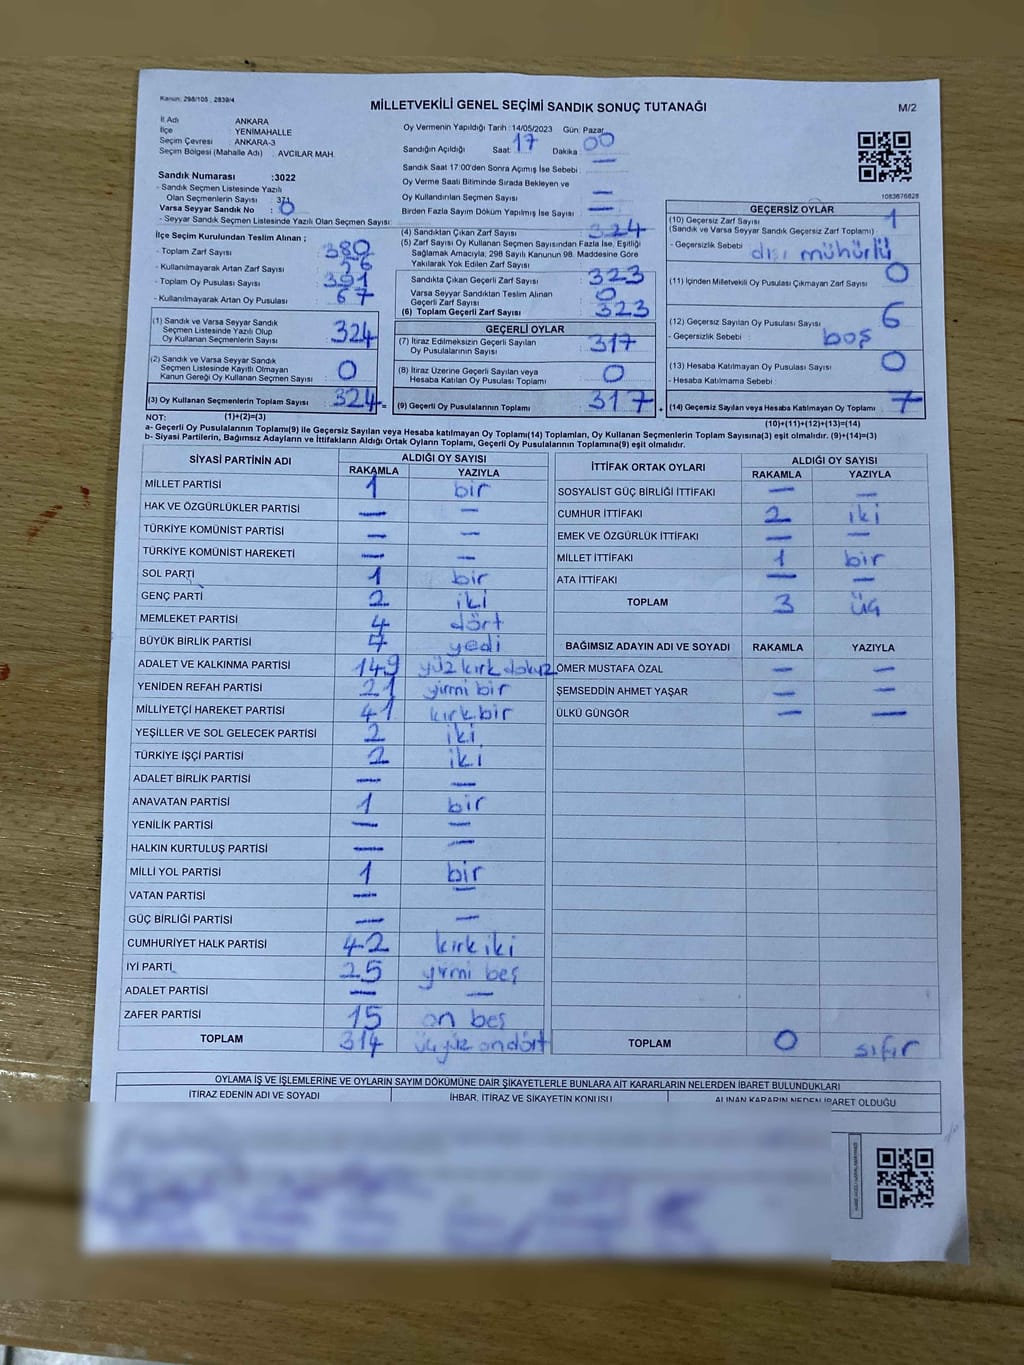 Kanun: 298/105 , 2839/4
MİLLETVEKİLİ GENEL SEÇİMİ SANDIK SONUÇ TUTANAĞI
M/2
İl Adı : ANKARA
İlçe : YENİMAHALLE
Seçim Çevresi : ANKARA-3
Seçim Bölgesi (Mahalle Adı) : AVCILAR MAH.
Sandık Numarası :3022
- Sandık Seçmen Listesinde Yazılı
Olan Seçmenlerin Sayısı : 371
Varsa Seyyar Sandık No : 0
- Seyyar Sandık Seçmen Listesinde Yazılı Olan Seçmen Sayısı:
İlçe Seçim Kurulundan Teslim Alınan ;
- Toplam Zarf Sayısı : 380
- Kullanılmayarak Artan Zarf Sayısı :
- Toplam Oy Pusulası Sayısı : 391
- Kullanılmayarak Artan Oy Pusulası : 67
(1) Sandık ve Varsa Seyyar Sandık
Seçmen Listesinde Yazılı Olup
Oy Kullanan Seçmen Sayısı : 324
(2) Sandık ve Varsa Seyyar Sandık
Seçmen Listesinde Kayıtlı Olmayan
Kanun Gereği Oy Kullanan Seçmen Sayısı : 0
(3) Oy Kullanan Seçmenlerin Toplam Sayısı : 324
Oy Vermenin Yapıldığı Tarih :14/05/2023 Gün: Pazar
Sandığın Açıldığı Saat: 17 Dakika : 00
Sandık Saat 17:00'den Sonra Açımış İse Sebebi : —
Oy Verme Saati Bitiminde Sırada Bekleyen ve
Oy Kullandırılan Seçmen Sayısı : —
Birden Fazla Sayım Döküm Yapılmış İse Sayısı : —
(4) Sandıktan Çıkan Zarf Sayısı : 324
(5) Zarf Sayısı Oy Kullanan Seçmen Sayısından Fazla İse, Eşitliği
Sağlamak Amacıyla, 298 Sayılı Kanunun 98. Maddesine Göre
Yakılarak Yok Edilen Zarf Sayısı :
Sandıkta Çıkan Geçerli Zarf Sayısı : 323
Varsa Seyyar Sandıktan Teslim Alınan
Geçerli Zarf Sayısı : 0
(6) Toplam Geçerli Zarf Sayısı : 323
GEÇERLİ OYLAR
(7) İtiraz Edilmeksizin Geçerli Sayılan
Oy Pusulalarının Sayısı : 317
(8) İtiraz Üzerine Geçerli Sayılan veya
Hesaba Katılan Oy Pusulası Toplamı : 0
(9) Geçerli Oy Pusulalarının Toplamı : 317
1083676828
GEÇERSİZ OYLAR
(10) Geçersiz Zarf Sayısı : 1
(Sandık ve Varsa Seyyar Sandık Geçersiz Zarf Toplamı)
- Geçersizlik Sebebi : dışı mühürlü
(11) İçinden Milletvekili Oy Pusulası Çıkmayan Zarf Sayısı : 0
(12) Geçersiz Sayılan Oy Pusulası Sayısı : 6
- Geçersizlik Sebebi : boş
(13) Hesaba Katılmayan Oy Pusulası Sayısı : 0
- Hesaba Katılmama Sebebi :
(14) Geçersiz Sayılan veya Hesaba Katılmayan Oy Toplamı : 7
NOT: (1)+(2)=(3)
(10)+(11)+(12)+(13)=(14)
a- Geçerli Oy Pusulalarının Toplamı(9) ile Geçersiz Sayılan veya Hesaba katılmayan Oy Toplamı(14) Toplamları, Oy Kullanan Seçmenlerin Toplam Sayısına(3) eşit olmalıdır. (9)+(14)=(3)
b- Siyasi Partilerin, Bağımsız Adayların ve İttifakların Aldığı Ortak Oyların Toplamı, Geçerli Oy Pusulalarının Toplamına(9) eşit olmalıdır.
SİYASİ PARTİNİN ADI ALDIĞI OY SAYISI
RAKAMLA YAZIYLA
MİLLET PARTİSİ 1 bir
HAK VE ÖZGÜRLÜKLER PARTİSİ — —
TÜRKİYE KOMÜNİST PARTİSİ — —
TÜRKİYE KOMÜNİST HAREKETİ — —
SOL PARTİ 1 bir
GENÇ PARTİ 2 iki
MEMLEKET PARTİSİ 4 dört
BÜYÜK BİRLİK PARTİSİ 7 yedi
ADALET VE KALKINMA PARTİSİ 149 yüz kırk dokuz
YENİDEN REFAH PARTİSİ 21 yirmi bir
MİLLİYETÇİ HAREKET PARTİSİ 41 kırk bir
YEŞİLLER VE SOL GELECEK PARTİSİ 2 iki
TÜRKİYE İŞÇİ PARTİSİ 2 iki
ADALET BİRLİK PARTİSİ — —
ANAVATAN PARTİSİ 1 bir
YENİLİK PARTİSİ — —
HALKIN KURTULUŞ PARTİSİ — —
MİLLİ YOL PARTİSİ 1 bir
VATAN PARTİSİ — —
GÜÇ BİRLİĞİ PARTİSİ — —
CUMHURİYET HALK PARTİSİ 42 kırk iki
İYİ PARTİ 25 yirmi beş
ADALET PARTİSİ — —
ZAFER PARTİSİ 15 on beş
TOPLAM 314 üçyüz ondört
İTTİFAK ORTAK OYLARI ALDIĞI OY SAYISI
RAKAMLA YAZIYLA
SOSYALİST GÜÇ BİRLİĞİ İTTİFAKI — —
CUMHUR İTTİFAKI 2 iki
EMEK VE ÖZGÜRLÜK İTTİFAKI — —
MİLLET İTTİFAKI 1 bir
ATA İTTİFAKI — —
TOPLAM 3 üç
BAĞIMSIZ ADAYIN ADI VE SOYADI RAKAMLA YAZIYLA
ÖMER MUSTAFA ÖZAL — —
ŞEMSEDDİN AHMET YAŞAR — —
ÜLKÜ GÜNGÖR — —
TOPLAM 0 sıfır
OYLAMA İŞ VE İŞLEMLERİNE VE OYLARIN SAYIM DÖKÜMÜNE DAİR ŞİKAYETLERLE BUNLARA AİT KARARLARIN NELERDEN İBARET BULUNDUKLARI
İTİRAZ EDENİN ADI VE SOYADI İHBAR, İTİRAZ VE ŞİKAYETİN KONUSU ALINAN KARARIN NEDEN İBARET OLDUĞU